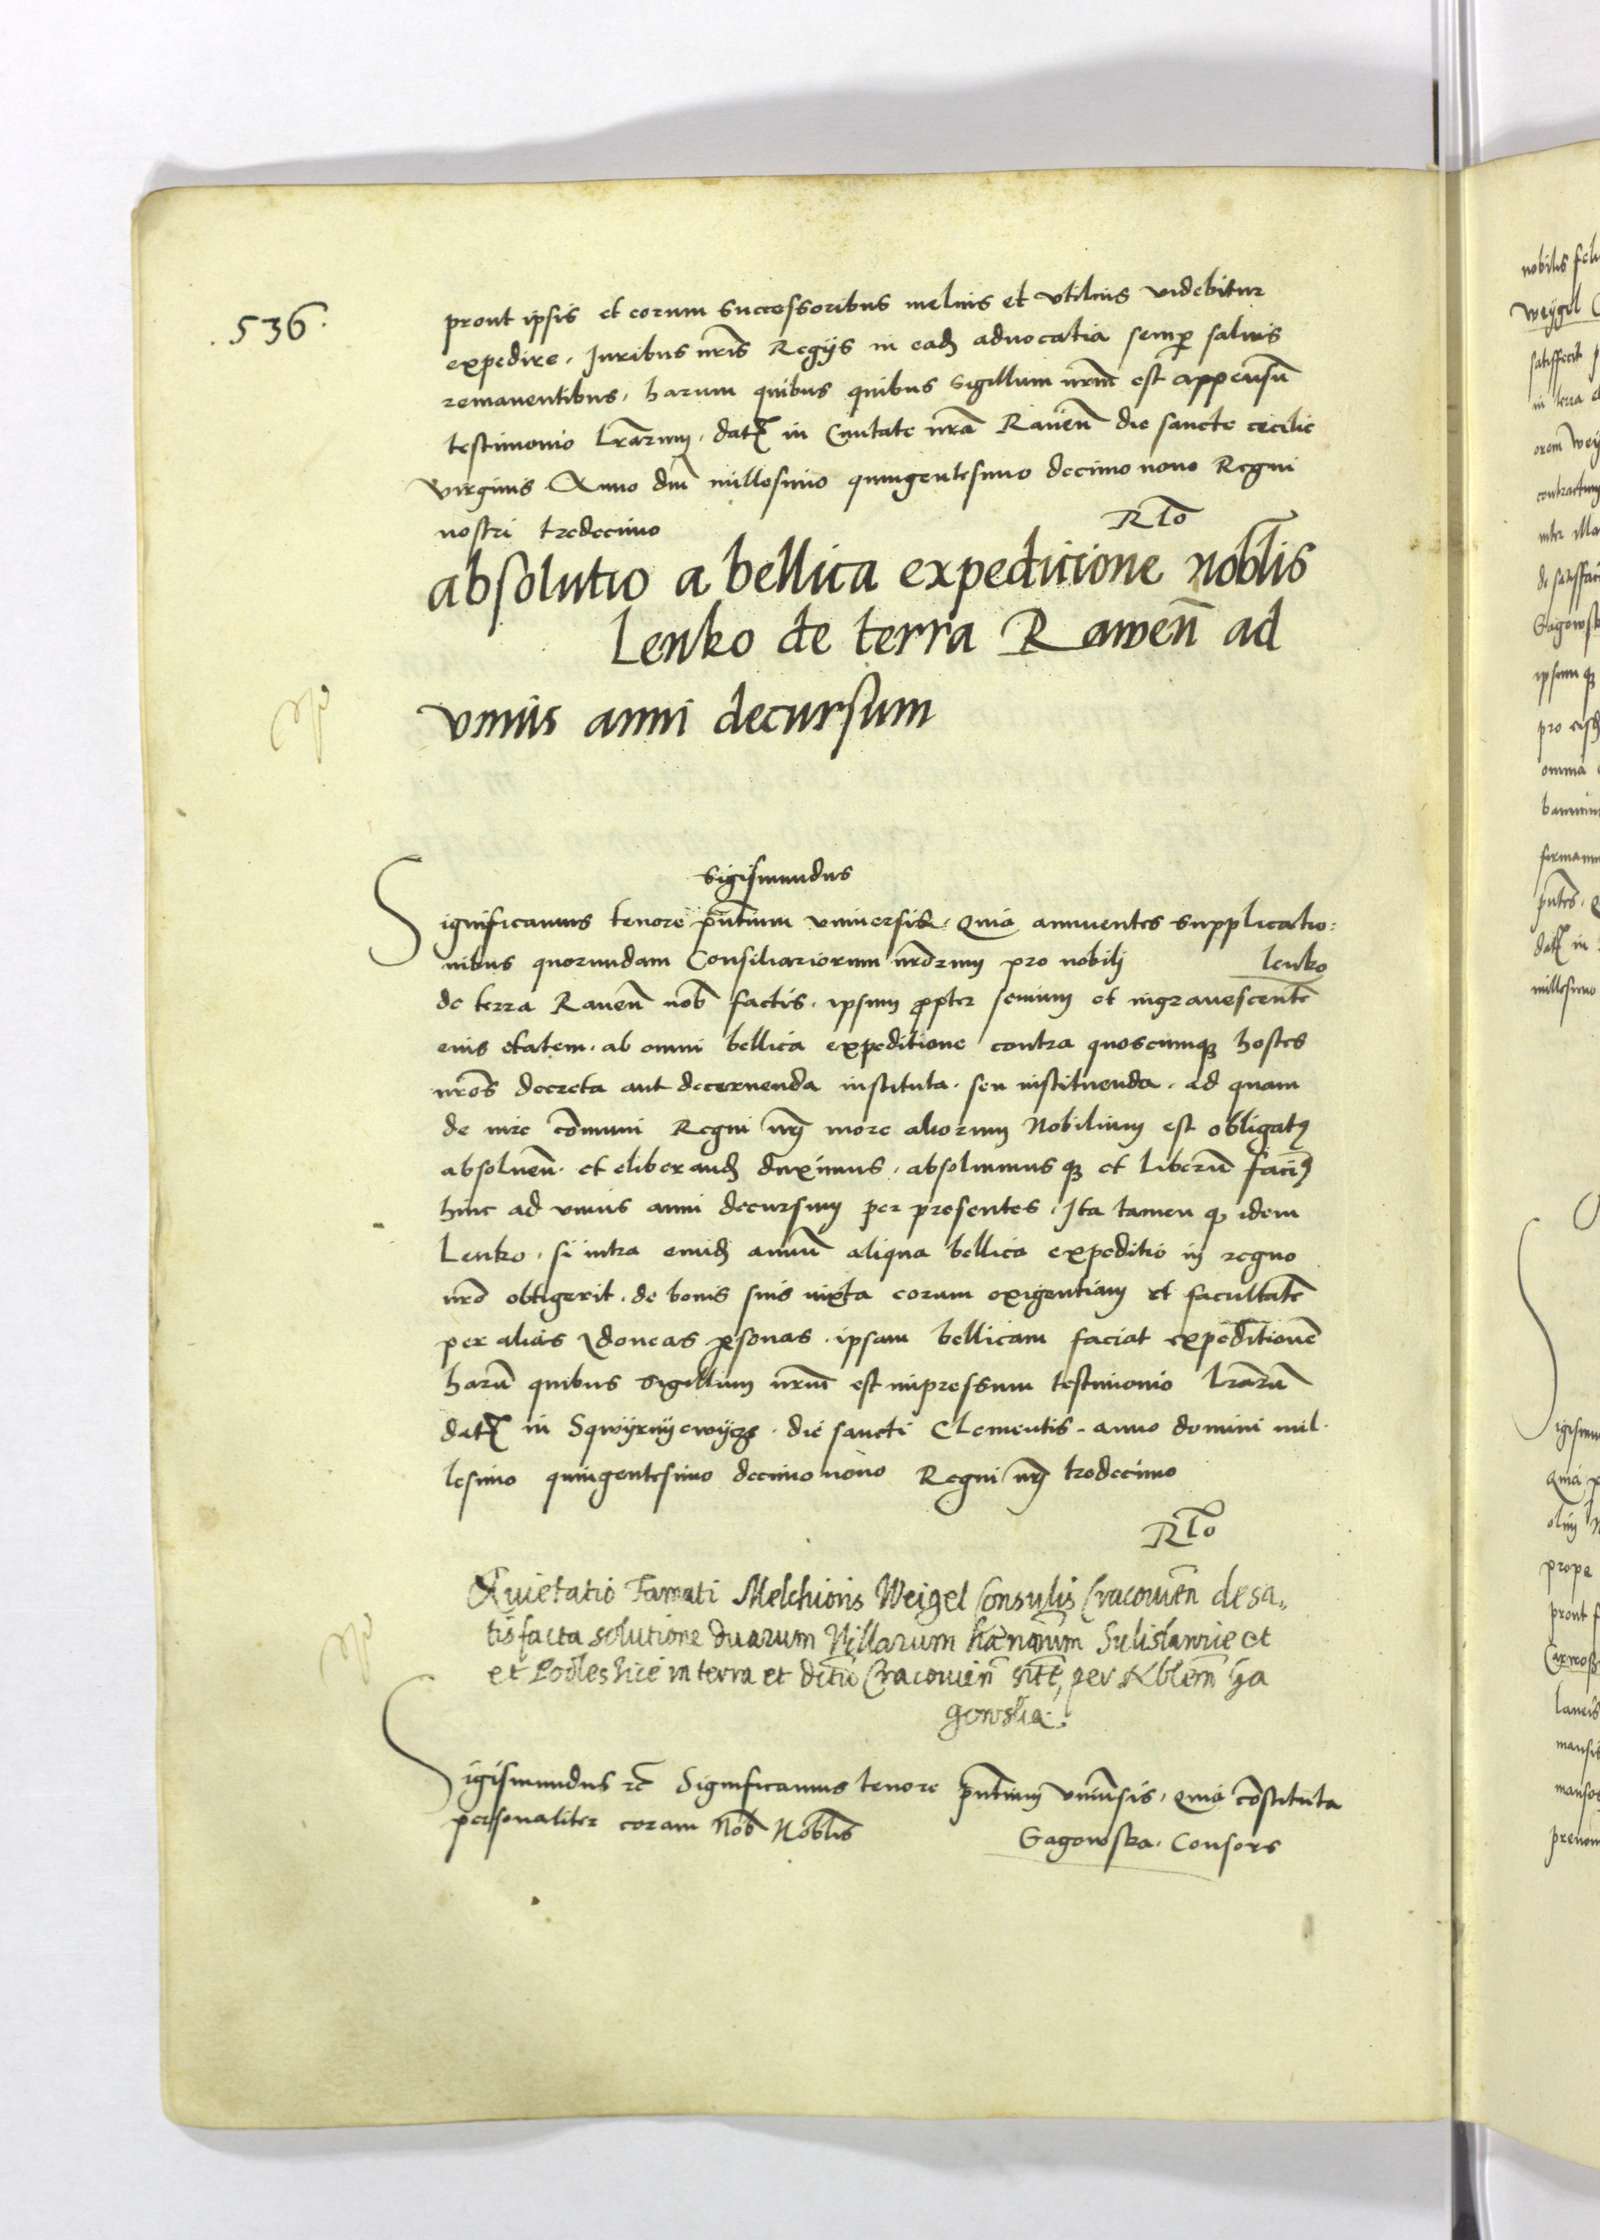 .536.
prout ipsis et eorum successoribus melius et utilius videbitur
expedire. Juribus nr̄is Regijs in eadꝫ advocatia semꝑ salvis
remanentibus. harum quibus quibus Sigillum nr̄m est appensū
testimonio lr̄arum. datꝫ in Civitate nr̄a Raveñ die sancte cecilie
virginis Anno dn̄i millesimo quingentesimo decimo nono Regni
nostri tredecimo
Rlo
absolutio a bellica expedicione nobl̄is
Lenko de terra Raweñ ad
vnius anni decursum
Sigismundus
Significamus tenore pn̄tium vniversis. Quia annuentes supplicatio:
nibus quorundam Consiliariorum nr̄orum pro nobilj Lenko
de terra Raveñ nob̄ factis. ipsum ꝓpter senium et ingravescentē
eius etatem. ab omni bellica expeditione contra quoscumqꝫ hostes
nr̄os decreta aut decernenda instituta. seu instituenda. ad quam
de iure cōmuni Regni nrj̄ more aliorum Nobilium est obligatꝰ
absolueñ. et eliberandꝫ duximus. absoluimusqꝫ et liberū facimꝰ
hinc ad vnius anni decursum per presentes. Ita tamen qꝫ idem
Lenko. si intra eundꝫ annū aliqua bellica expeditio in regno
nr̄o obtigerit. de bonis suis iuxta eorum exigentiam et facultatē
per alias ydoneas ꝑsonas. ipsam bellicam faciat expeditionē
harū quibus Sigillum nr̄m est impressum testimonio lr̄arū
datꝫ in Sqwyrnyewycze. die sancti Clementis. anno domini mil.
lesimo quingentesimo decimo nono Regni nrj̄ tredecimo
Rlo
Quietatio Famati Melchioris Weigel Consulis Cracovieñ de sa„
tisfacta solutione duarum Villarum Sulislawie et
et Podleshice in terra et Cracovieñ sitē, per Nblem̄ Ga
gowska.
Sigismundus rc̄ Significamus tenore pn̄tium vniversis. Quia cōstituta
personaliter coram Nob̄ Nobl̄is Gagowska. Consors